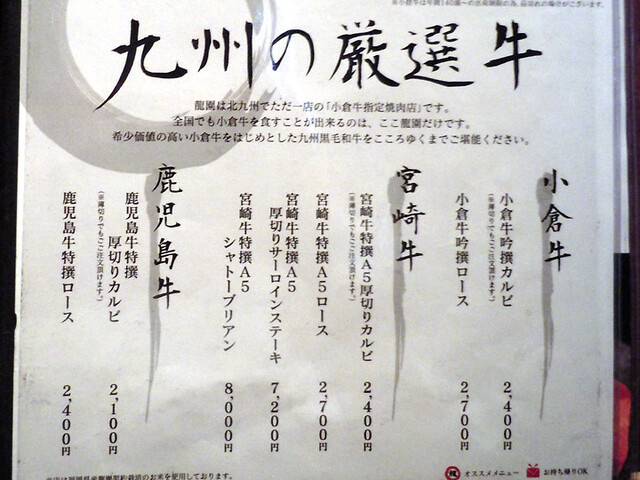 九州の厳選牛
龍園は北九州でただ一店の「小倉牛指定焼肉店」です。
全国でも小倉牛を食すことが出来るのは、ここ龍園だけです。
希少価値の高い小倉牛をはじめとした九州黒毛和牛をこころゆくまでご堪能ください。
小倉牛
小倉牛吟撰カルビ 2,400円
(※薄切りでもご注文頂けます。)
小倉牛吟撰ロース 2,700円
宮崎牛
宮崎牛特撰A5厚切りカルビ 2,400円
(※薄切りでもご注文頂けます。)
宮崎牛特撰A5ロース 2,700円
宮崎牛特撰A5
厚切りサーロインステーキ 7,200円
宮崎牛特撰A5
シャトーブリアン 8,000円
鹿児島牛
鹿児島牛特撰
厚切りカルビ 2,100円
(※薄切りでもご注文頂けます。)
鹿児島牛特撰ロース 2,400円
オススメメニュー
お持ち帰りOK